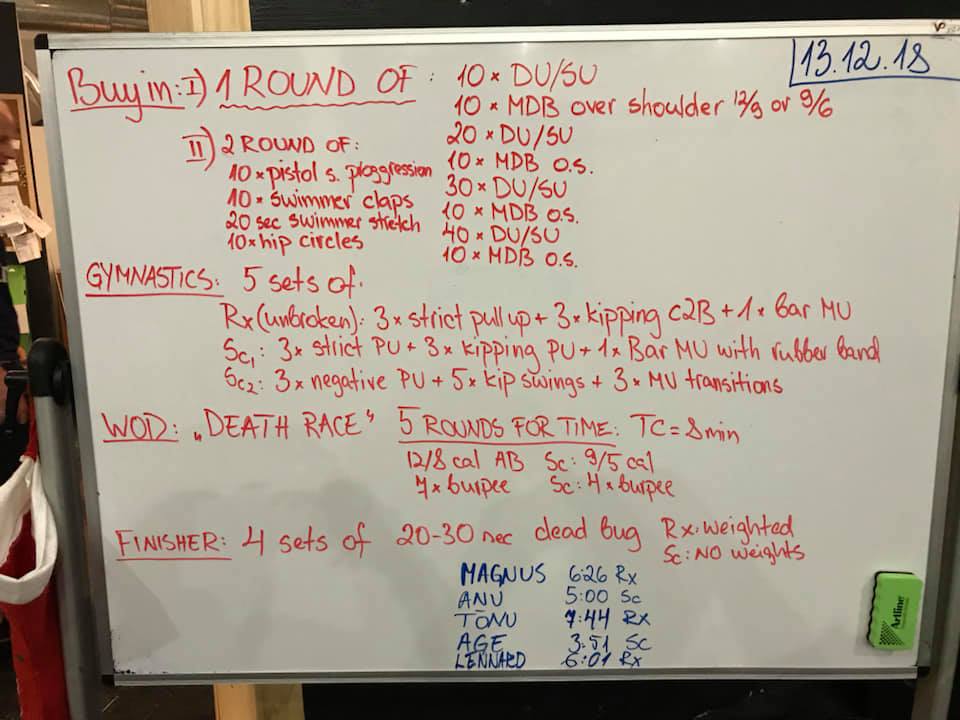 13.12.18
Buy in: I) 1 ROUND OF: 10 × DU/SU
10 × MDB over shoulder 12/9 or 9/6
20 × DU/SU
10 × MDB o.s.
30 × DU/SU
10 × MDB o.s.
40 × DU/SU
10 × MDB o.s.
II) 2 ROUND OF:
10 × pistol s. ploggression
10 × swimmer claps
20 sec swimmer stretch
10 × hip circles
GYMNASTICS: 5 sets of:
Rx (unbroken): 3 × strict pull up + 3 × kipping C2B + 1 × bar MU
Sc1: 3 × strict PU + 3 × kipping PU + 1 × Bar MU with rubber band
Sc2: 3 × negative PU + 5 × kip swings + 3 × MU transitions
WOD: „DEATH RACE" 5 ROUNDS FOR TIME: TC = 8min
12/8 cal AB Sc: 9/5 cal
7 × burpee Sc: 4 × burpee
FINISHER: 4 sets of 20-30 sec dead bug Rx: weighted
Sc: NO weights
MAGNUS 6:26 Rx
ANU 5:00 Sc
TÕNU 7:44 Rx
AGE 3:51 Sc
LENNARD 6:01 Rx
Artline